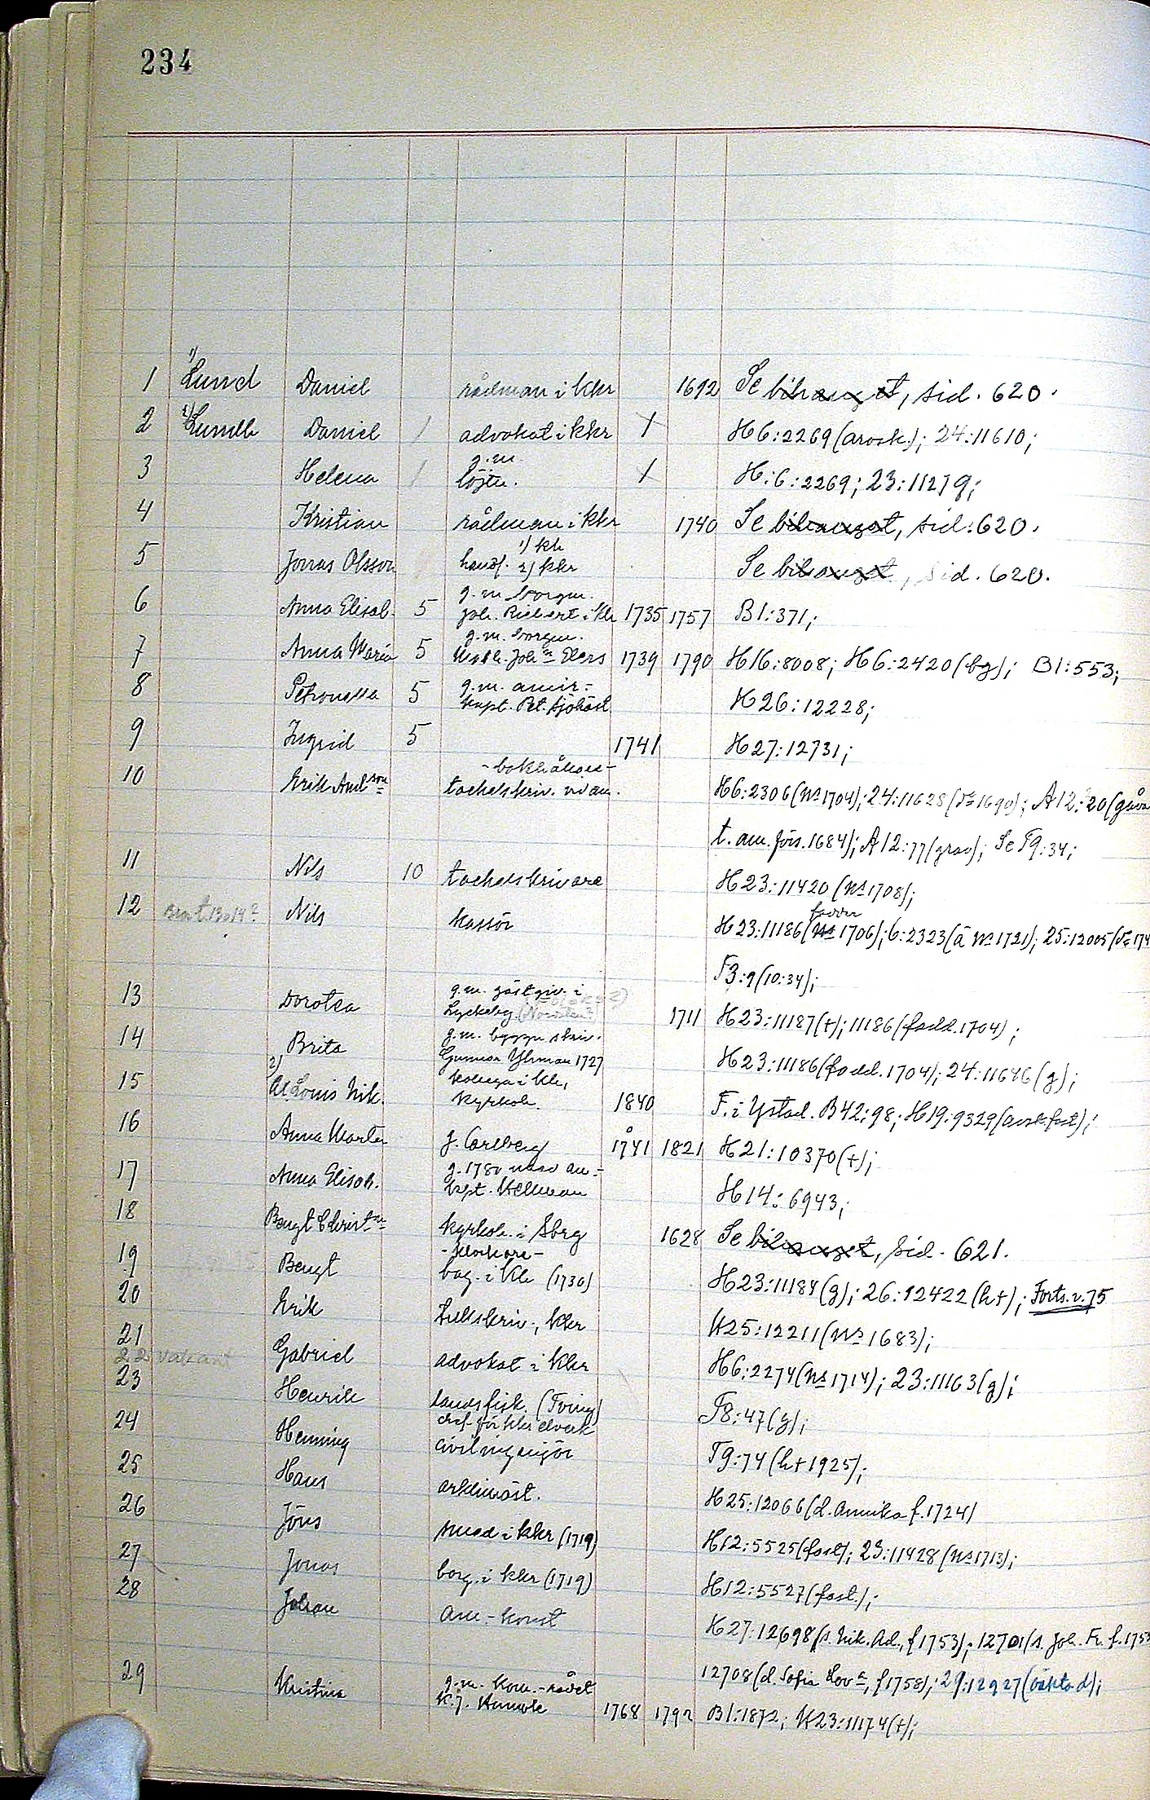 234
1 1) Lund Daniel rådman i kkr 1692 Se bihanget, sid. 620.
2 2) Lundh Daniel 1 advokat i kkr 1 H6:2269 (avsk.); 24:11610;
g.m.
3 Helena 1 löjtn. 1 H:6:2269; 23:11279;
4 Kristian rådman i kkr 1740 Se bihanget, sid. 620.
1) kh
5 Jonas Olsson handl. 2) kkr Se bihanget, sid. 620.
g.m. borgm.
6 Anna Elisab. 5 Joh. Riebert i kh 1735 1757 B1:371;
g.m. borgm.
7 Anna Maria 5 Joh:n Elers 1739 1790 H16:8008; H6:2420 (bg); B1:553;
g.m. amir.-
8 Petronella 5 kapt. Pet. Sjöbäst H26:12228;
9 Ingrid 5 1741 H27:12731;
-bokhållare-
10 Erik Andsson tackelskriv. vid am. H6:2306 (N:o 1704); 24:11628 (1690); A12:20 (gåva
t. am. förs. 1684); A12:77 (grav); Se T9:34;
11 Nils 10 tackelskrivare H23:11420 (N:o 1708);
fadder
12 Nils kassör H23:11186 (1706); 6:2323 (å N:o 1721); 25:12005 (174
T3:9 (10:34);
g.m. gästgiv. i
13 Dorotea Lyckeby 1711 H23:11187 (+); 11186 (fadd. 1704);
g.m. byggn. skriv.
14 Brita Gunnar Yhrman 1727 H23:11186 (fadd. 1704); 24:11646 (g);
2) kollega i kkr,
15 Louis Nik. kyrkoh. 1840 F. i Ystad. B42:98; H19:9329 (avsk. fast);
16 Anna Marta g. Carlberg 1741 1821 H21:10370 (+);
g. 1780 med am.-
17 Anna Elisab. kapt. Kellman H14:6943;
18 Bengt Christ:n kyrkoh. i Sbrg 1628 Se bihanget, sid. 621.
-klockare-
19 Bengt borg. i kkr (1730) H23:11184 (g); 26:12422 (h+); Forts. v. 75
20 Erik tullskriv., kkr H25:12211 (N:o 1683);
21 Gabriel advokat i kkr H6:2274 (N:o 1714); 23:11163 (g);
22 vakant
23 Henrik landsfisk. (Tving) T8:47 (g);
chef för kkrs elverk
24 Henning civilingenjör T9:74 (h+ 1925);
25 Hans arklimäst. H25:12066 (d. Annika f. 1724)
26 Jöns smed i kkr (1719) H12:5525 (fast); 23:11428 (N:o 1713);
27 Jonas borg. i kkr (1719) H12:5527 (fast.);
28 Johan am.-konst H27:12698 (s. Nik. Ad., f 1753); 12701 (s. Joh. Fr. f. 1753
12708 (d. Sofia Lov:a, f 1758); 29:12927
g.m. kom.-rådet
29 Kristina K.J. 1768 1792 B1:1872; H23:11174 (+);